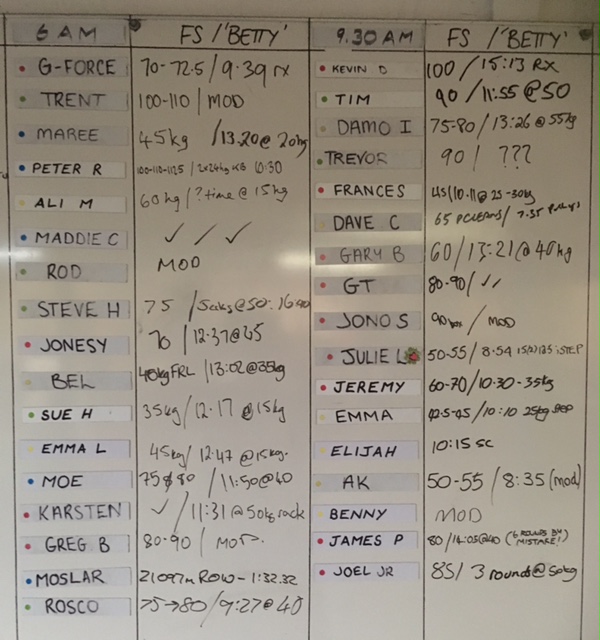 6 AM FS / 'BETTY'
G-FORCE 70-72.5 / 9.39 rx
TRENT 100-110 / MOD
MAREE 45kg / 13.20 @ 20kg
PETER R 100-110-112.5 / 2x24kg KB 10:30
ALI M 60kg / ? time @ 15kg
MADDIE C ✓ / ✓
ROD MOD
STEVE H 75 / @50.
JONESY 70 / 12:37@
BEL 40kg FRL / 13:02@35kg
SUE H 35kg / 12.17 @ 15kg
EMMA L 45kg / 12.47 @ 15kg.
MOE 75 80 / 11:50@40
KARSTEN ✓ / 11:31 @ 50kg rack
GREG B 80-90 / MOD.
MOSLAR 21097m ROW - 1:32.32
ROSCO 75→80 / 9:27@40
9.30 AM FS / 'BETTY'
KEVIN D 100 / 15:13 RX
TIM 90 / 11:55 @50
DAMO I 75-80 / 13:26 @ 55kg
TREVOR 90 / ???
FRANCES 45 / 10.11@ 25-30kg
DAVE C 65 PCLEANS / 7.35
GARY B 60 / 13:21@40kg
GT 80-90 / ✓✓
JONO S 90 / MOD
JULIE L 50-55 / 8.54 STEP
JEREMY 60-70 / 10:30 - 35kg
EMMA 42.5-45 / 10:10 25kg STEP
ELIJAH 10:15 SC
AK 50-55 / 8:35 (mod)
BENNY MOD
JAMES P 80 / 14:05@40 (6 ROUNDS BY MISTAKE!)
JOEL JR 85 / 3 rounds @ 50kg